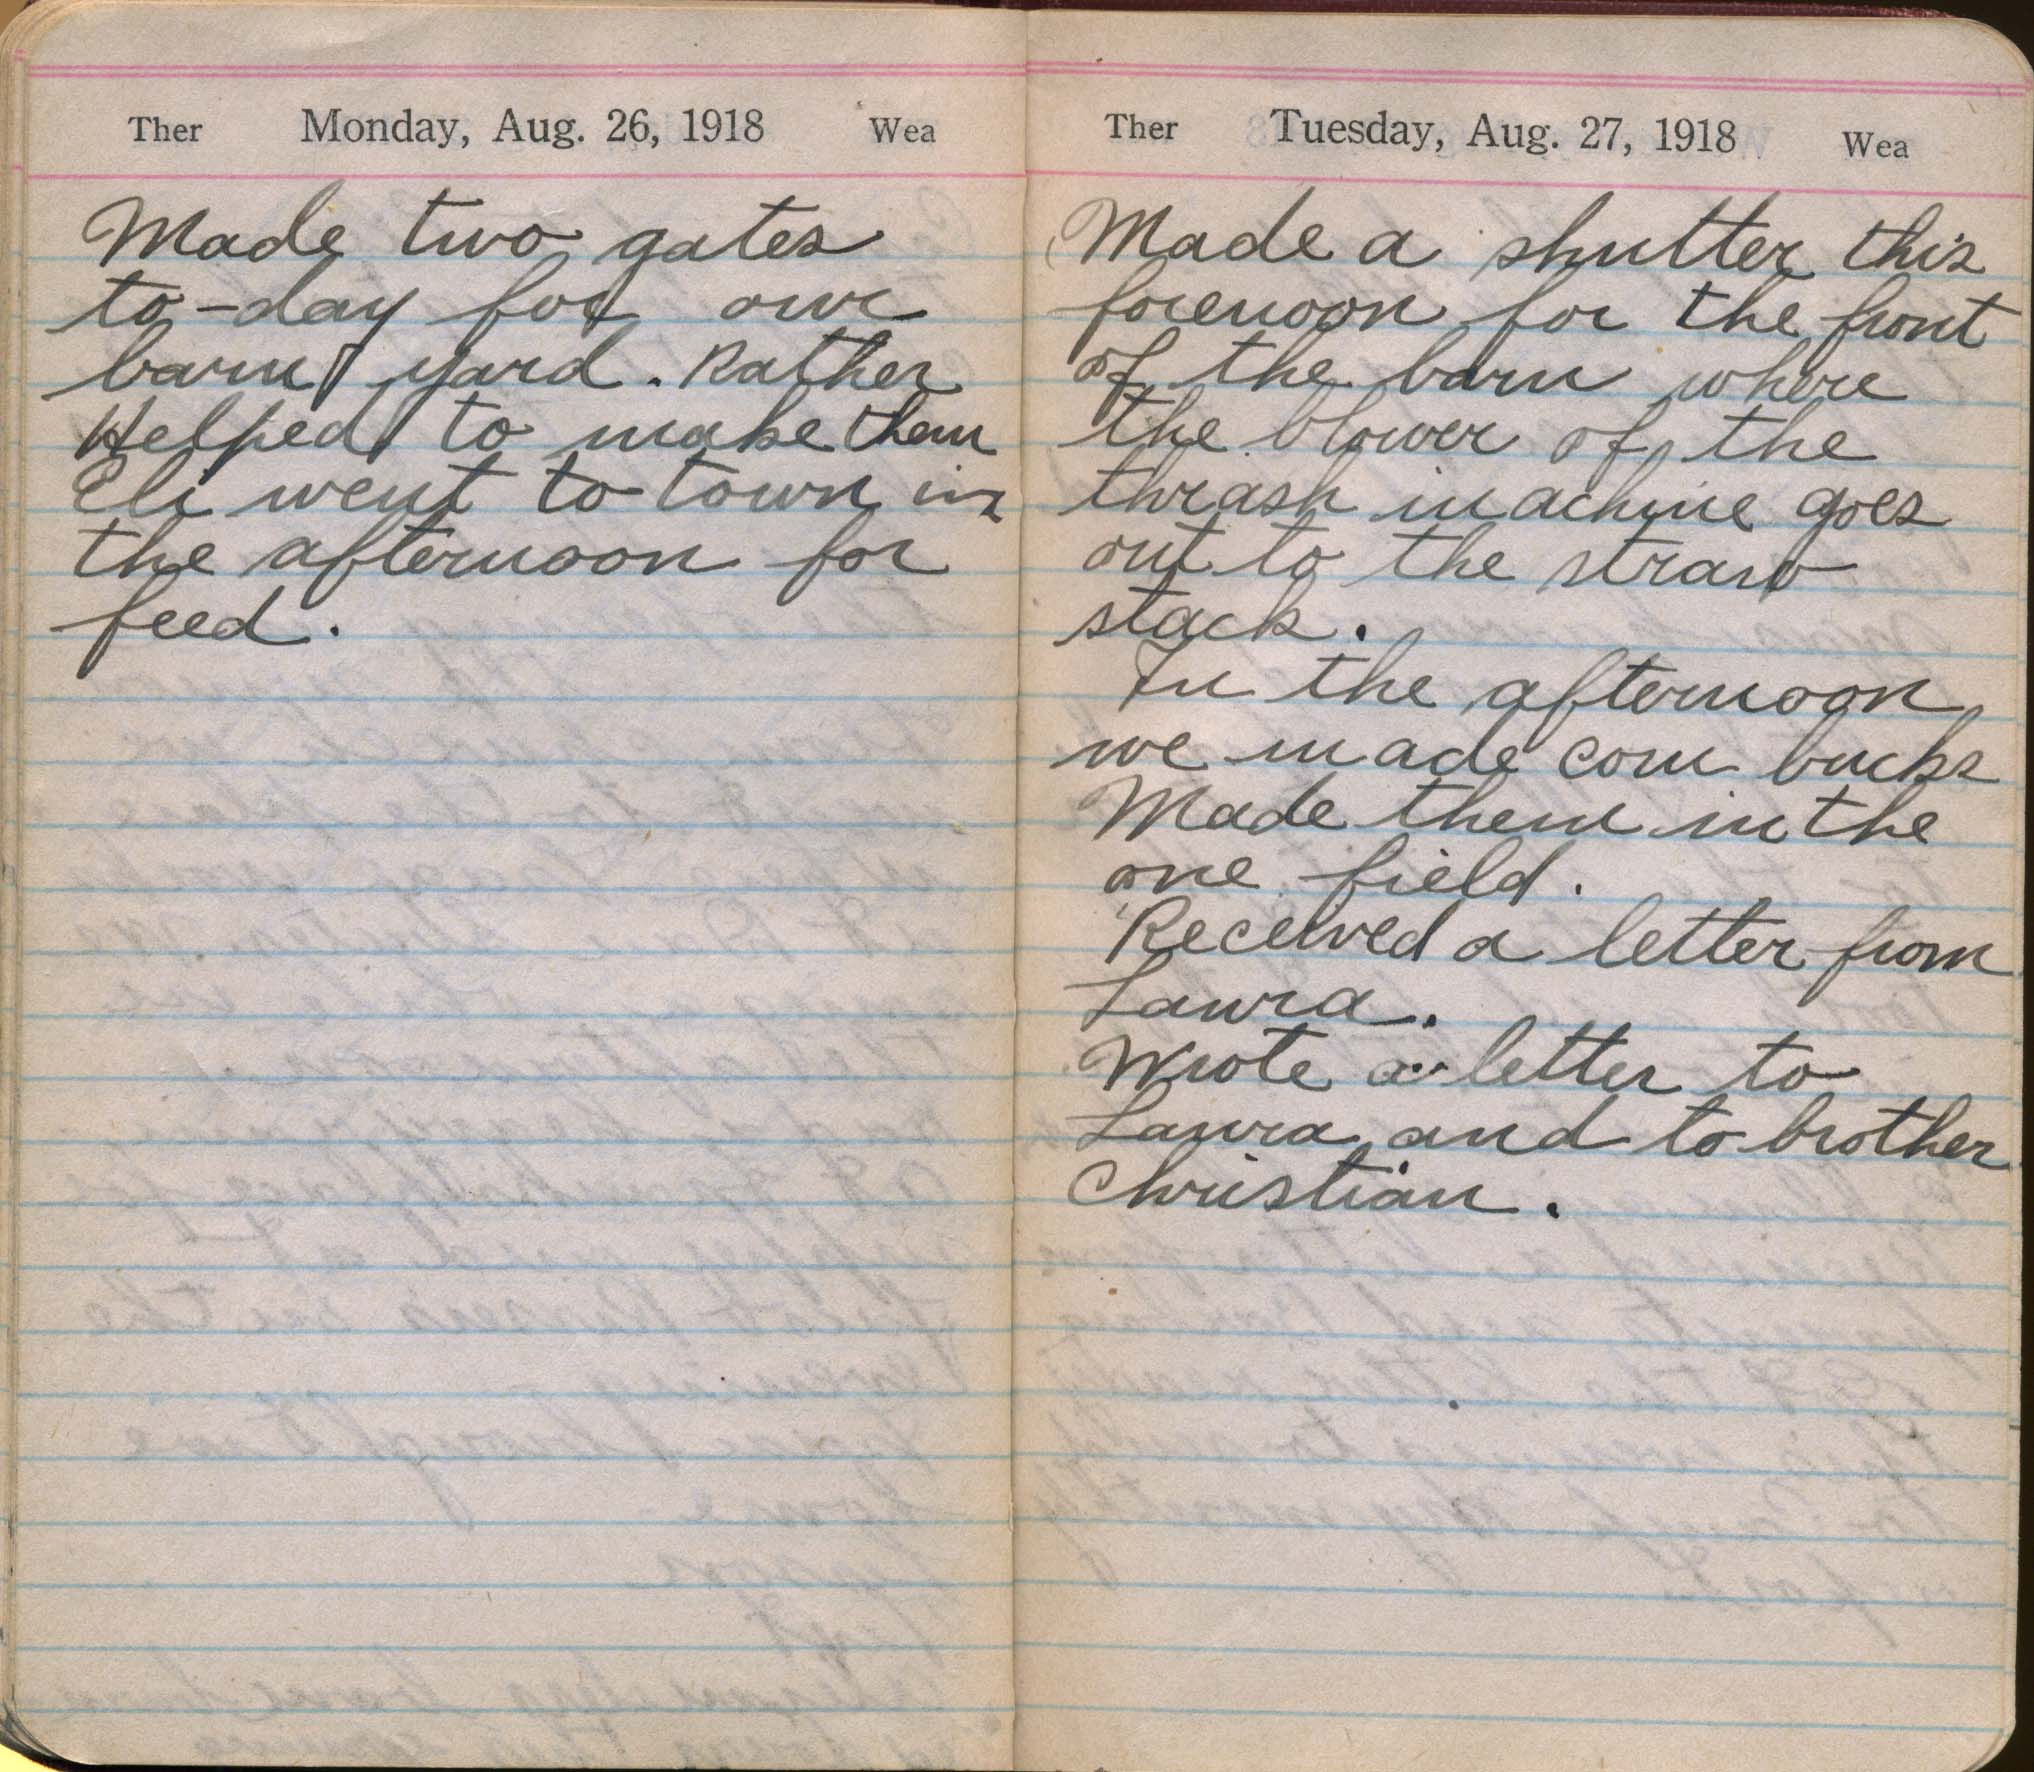 Ther Monday, Aug. 26, 1918 Wea
Made two gates
to-day for our
barn yard. Rather
Helped to make them
Eli went to town in
the afternoon for
feed.
Ther Tuesday, Aug. 27, 1918 Wea
Made a shutter this
forenoon for the front
of the barn where
the blower of the
thrash machine goes
out to the straw
stack.
In the afternoon
we made corn bucks
Made them in the
one field.
Received a letter from
Laura.
Wrote a letter to
Laura and to brother
Christian.